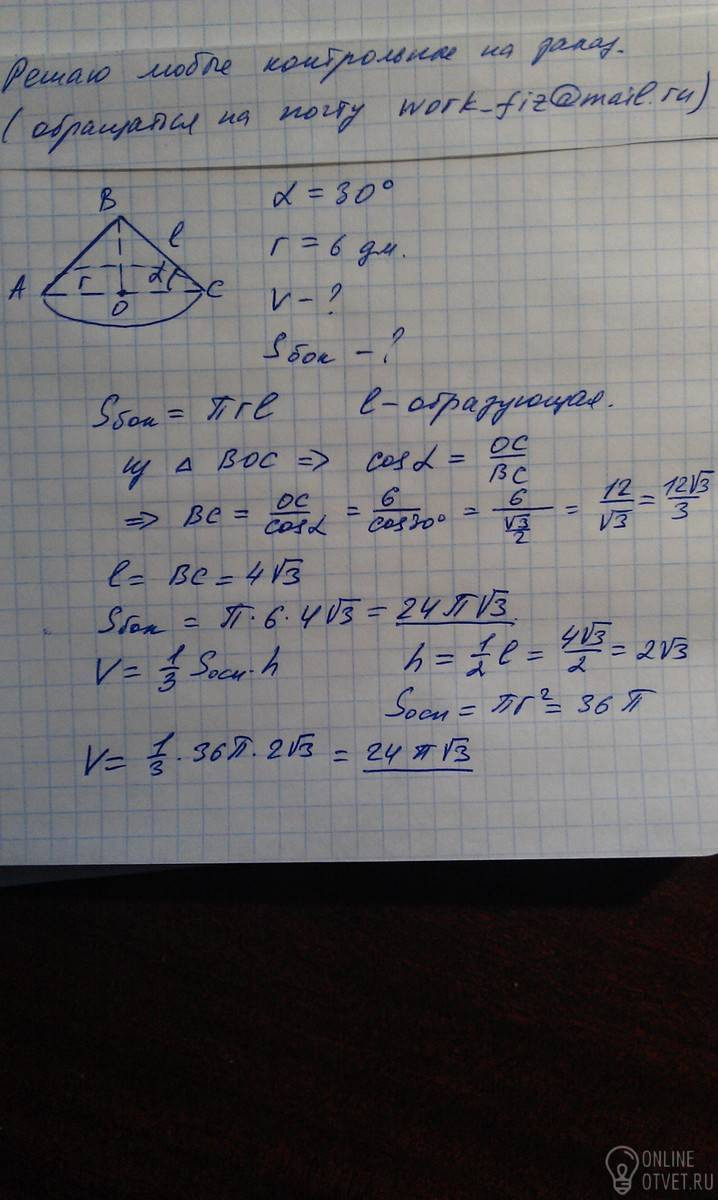 Решаю любые контрольные на заказ.
(обращаться на почту work_fiz@mail.ru)
B
l
A
r
α
C
O
α = 30°
r = 6 дм.
V - ?
Sбок - ?
Sбок = πrl   l - образующая.
из △ BOC => cosα = OC/BC
=> BC = OC/cosα = 6/cos30° = 6/(√3/2) = 12/√3 = 12√3/3
l = BC = 4√3
Sбок = π·6·4√3 = 24π√3
V = 1/3 Sосн·h   h = 1/2 l = 4√3/2 = 2√3
Sосн = πr² = 36π
V = 1/3 · 36π · 2√3 = 24π√3
ONLINE
OTVET.RU